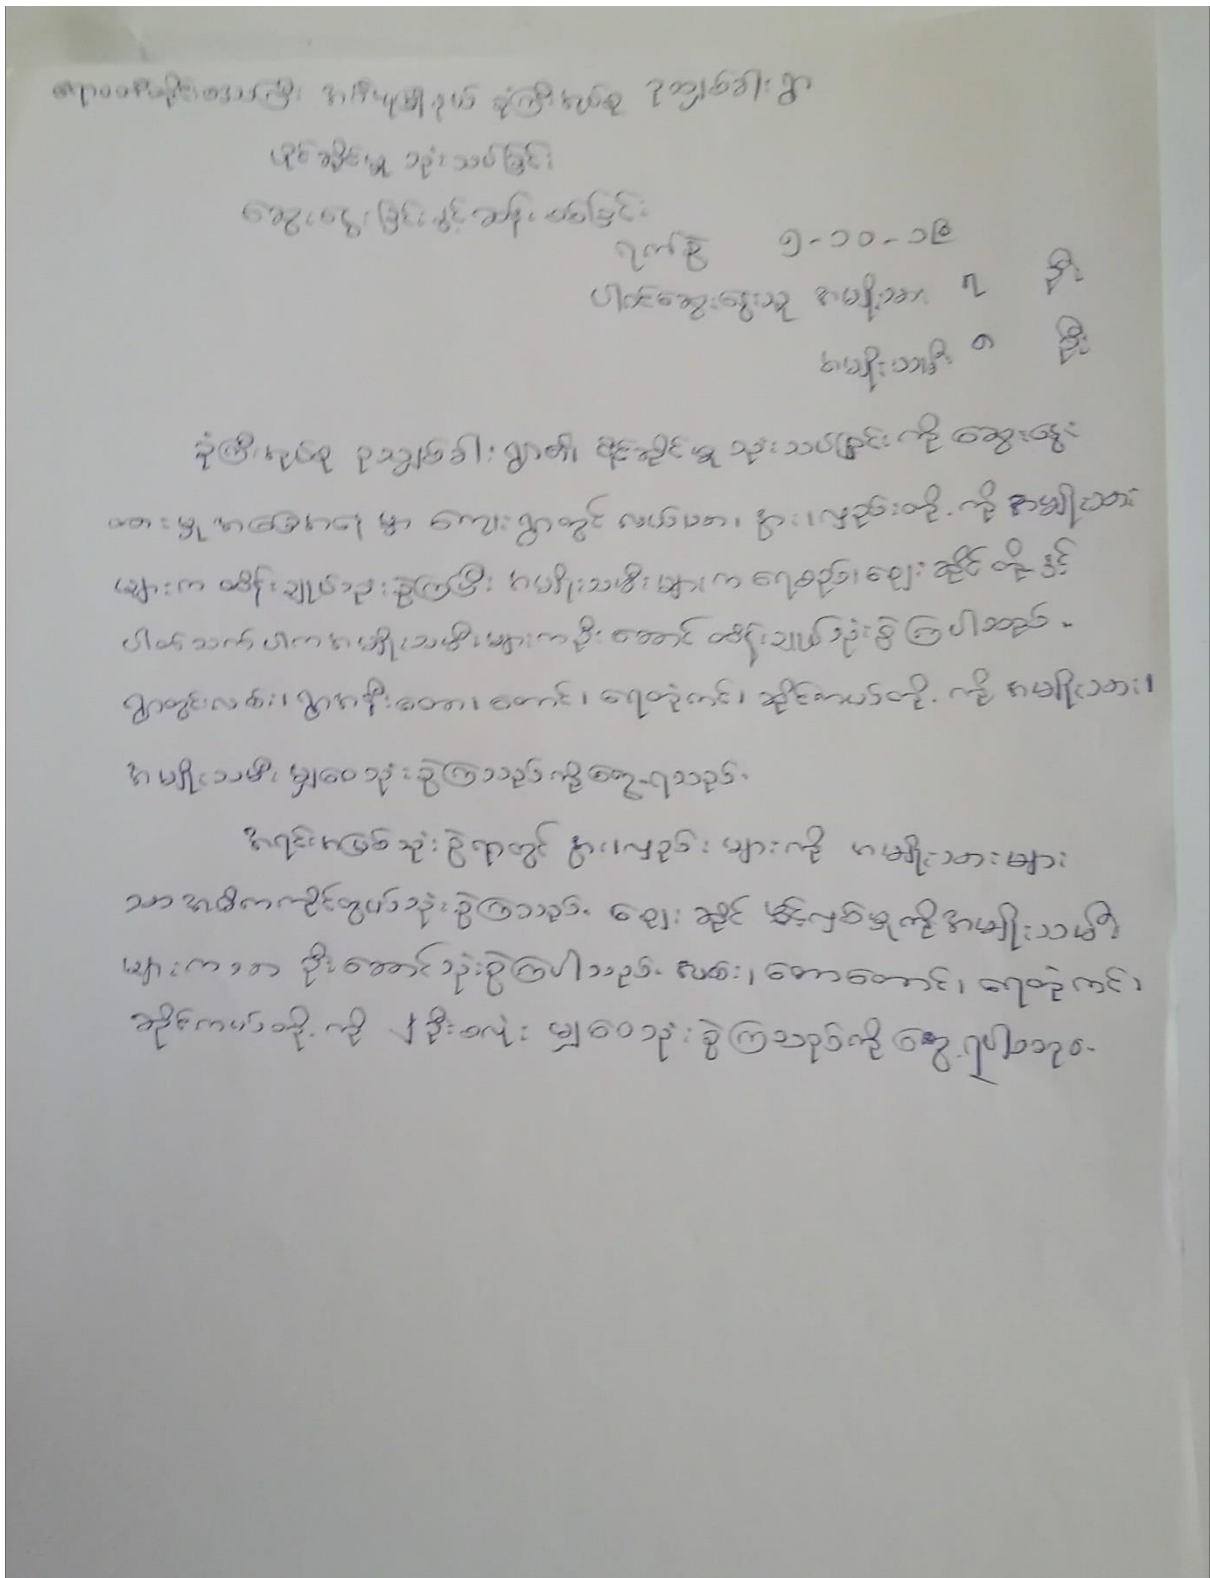 ဧရာဝတီတိုင်းဒေသကြီး အင်္ဂပူမြို့နယ် ခုံကြီးအုပ်စု ခုညှစ်ခါးရွာ
ပိုင်ဆိုင်မှု သုံးသပ်ခြင်း
ဆွေးနွေးခြင်းနှင့်ဆန်းစစ်ခြင်း
ရက်စွဲ ၅-၁၀-၁၆
ပါဝင်ဆွေးနွေးသူ အမျိုးသား ၇ ဦး
အမျိုးသမီး ၈ ဦး
ခုံကြီးအုပ်စု ခုညှစ်ခါးရွာ၏ ပိုင်ဆိုင်မှု သုံးသပ်ခြင်းကို ဆွေးနွေး
ထားမှု အခြေအနေ မှာ ကျေးရွာတွင် လယ်ယာ၊ နွား၊လှည်းတို့ကို အမျိုးသား
များက ထိန်းချုပ်သုံးစွဲကြပြီး အမျိုးသမီးများက ရေစည်၊ ဈေးဆိုင် တို့နှင့်
ပါတ်သက်ပါကအမျိုးသမီးများကဦးဆောင် ထိန်းချုပ်သုံးစွဲကြပါသည်။
ရွာတွင်းလမ်း၊ ရွာအနီးတော၊ တောင်၊ ရေတွင်းကင်၊ ဆိုင်ကယ်တို့ကို အမျိုးသား၊
အမျိုးသမီး မျှဝေသုံးစွဲကြသည်ကိုတွေ့ရသည်။
အရင်းအမြစ်သုံးစွဲရာတွင် နွား၊လှည်းများကို အမျိုးသားများ
သာအဓိကကိုင်တွယ်သုံးစွဲကြသည်။ ဈေးဆိုင် ဖွင့်လှစ်မှုကိုအမျိုးသမီး
များကသာ ဦးဆောင်သုံးစွဲကြပါသည်။ လမ်း၊ တောတောင်၊ ရေတွင်းကင်၊
ဆိုင်ကယ်တို့ကို ၂ ဦးစလုံး မျှဝေသုံးစွဲကြသည်ကို တွေ့ရပါသည်။